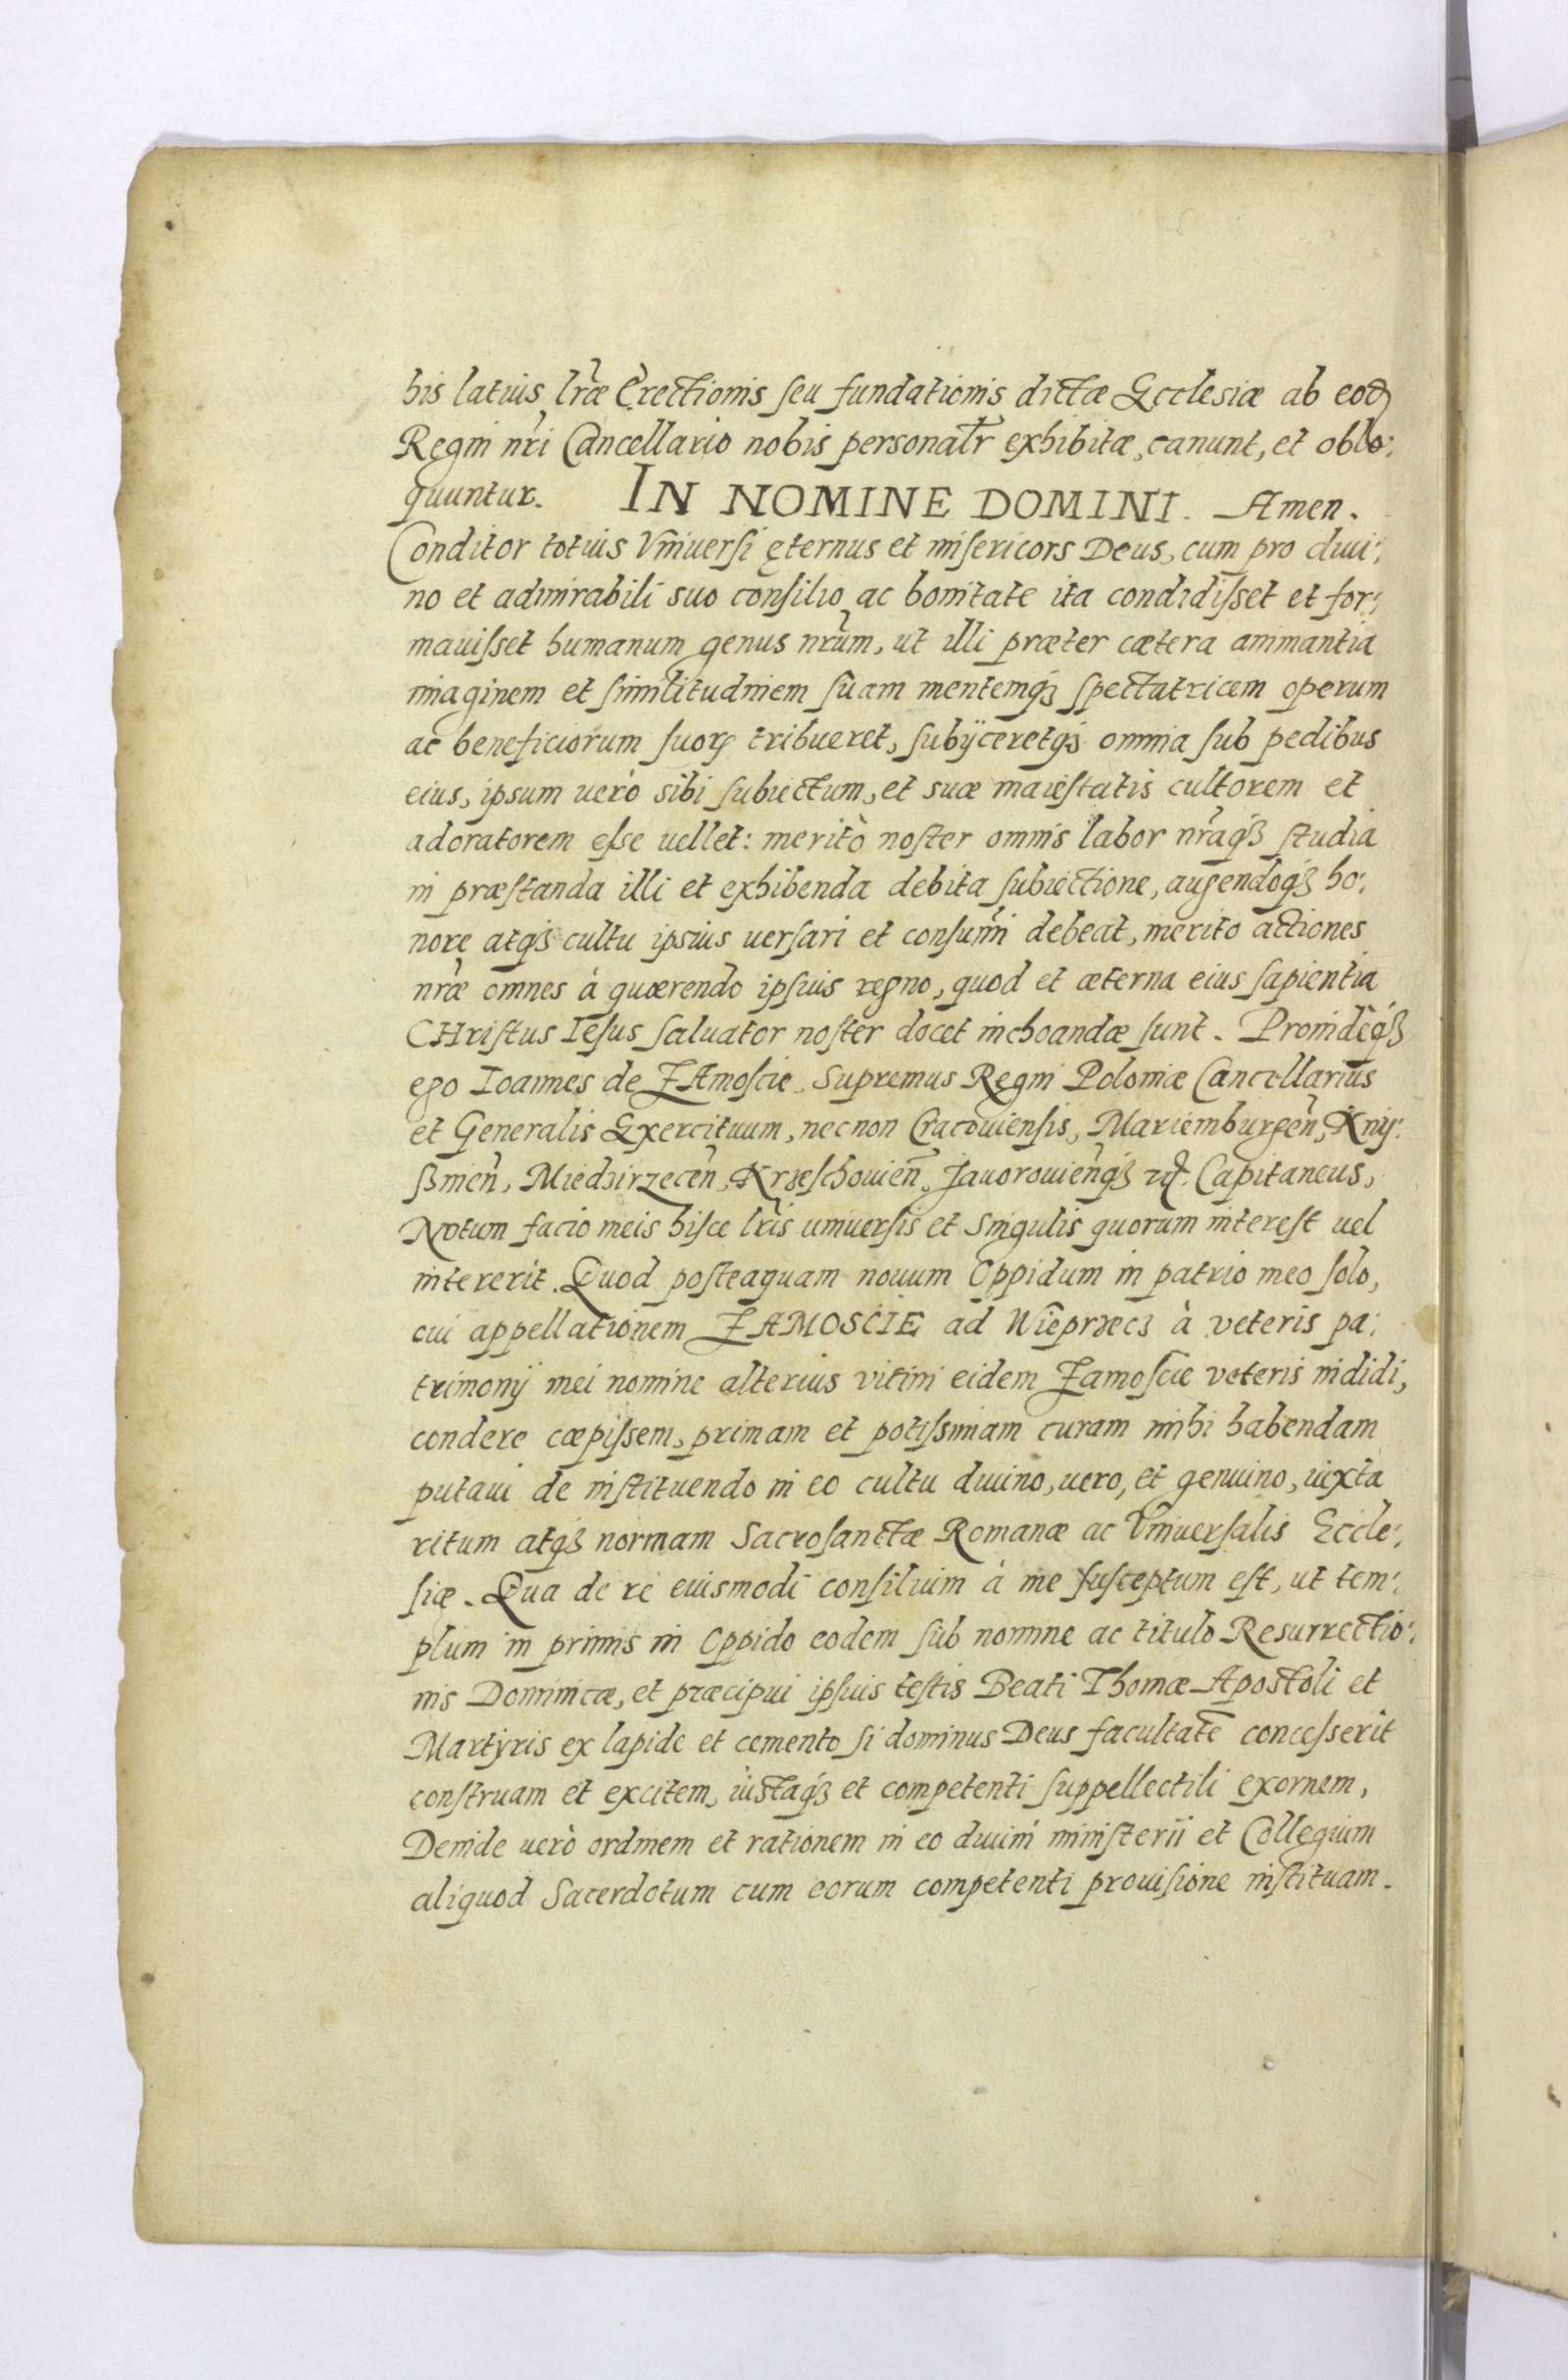 his latius lr̃æ Erectionis ſeu fundationis dictæ Ecclesiæ ab eod̃
Regni nr̃i Cancellario nobis personalr̃ exhibitæ, canunt, et oblo:
quuntur. IN NOMINE DOMINI. Amen.
Conditor totius Vniuerſi ęternus et miſericors Deus, cum pro diui:
no et admirabili suo conſilio ac bonitate ita condidiſset et for:
mauiſset humanum genus nr̃um, ut illi præter cætera animantia
imaginem et ſimilitudinem ſuam mentemqꝫ ſpectatricem operum
ac beneficiorum ſuoꝝ tribueret, ſubÿceretqꝫ omnia ſub pedibus
eius, ipsum uerò sibi ſubiectum, et suæ maieſtatis cultorem et
adoratorem eſse uellet: meritò noſter omnis labor nr̃aqꝫ ſtudia
in præſtanda illi et exhibenda debita ſubiectione, augendoqꝫ ho:
nore atqꝫ cultu ipsius uerſari et conſumi debeat, merito actiones
nr̃æ omnes à quærendo ipſius regno, quod et æterna eius ſapientia
CHriſtus Ieſus ſaluator noſter docet inchoandæ ſunt. Proindeqꝫ
ego Ioannes de ZAmoſcie Supremus Regni Poloniæ Cancellarius
et Generalis Exercituum, necnon Cracouienſis, Mariemburgen̄, Knÿ:
ſsinen̄, Miedzirzecen̄, Krzeſchouien̄, Jauorouien̄qꝫ ꝛc̃. Capitaneus,
Notum facio meis hiſce lr̃is uniuerſis et Singulis quorum intereſt uel
intererit. Quod poſteaquam nouum Oppidum in patrio meo ſolo,
cui appellationem ZAMOSCIE ad Wieprzecz à veteris pa:
trimonÿ mei nomine alterius vicini eidem Zamoſcie veteris indidi,
condere cæpiſsem, primam et potiſsimam curam mihi habendam
putaui de inſtituendo in eo cultu diuino, uero, et genuino, iuxta
ritum atqꝫ normam Sacroſanctæ Romanæ ac Vniuerſalis Eccle:
ſiæ. Qua de re eiusmodi conſilium à me ſuſceptum eſt, ut tem:
plum in primis in Oppido eodem ſub nomine ac titulo Resurrectio:
nis Dominicæ, et præcipui ipſius teſtis Beati Thomæ Apostoli et
Martÿris ex lapide et cemento ſi dominus Deus facultatē conceſserit
conſtruam et excitem, iustaqꝫ et competenti ſuppellectili exornem,
Deinde uerò ordinem et rationem in eo diuini miniſterii et Collegium
aliquod Sacerdotum cum eorum competenti prouiſione inſtituam.